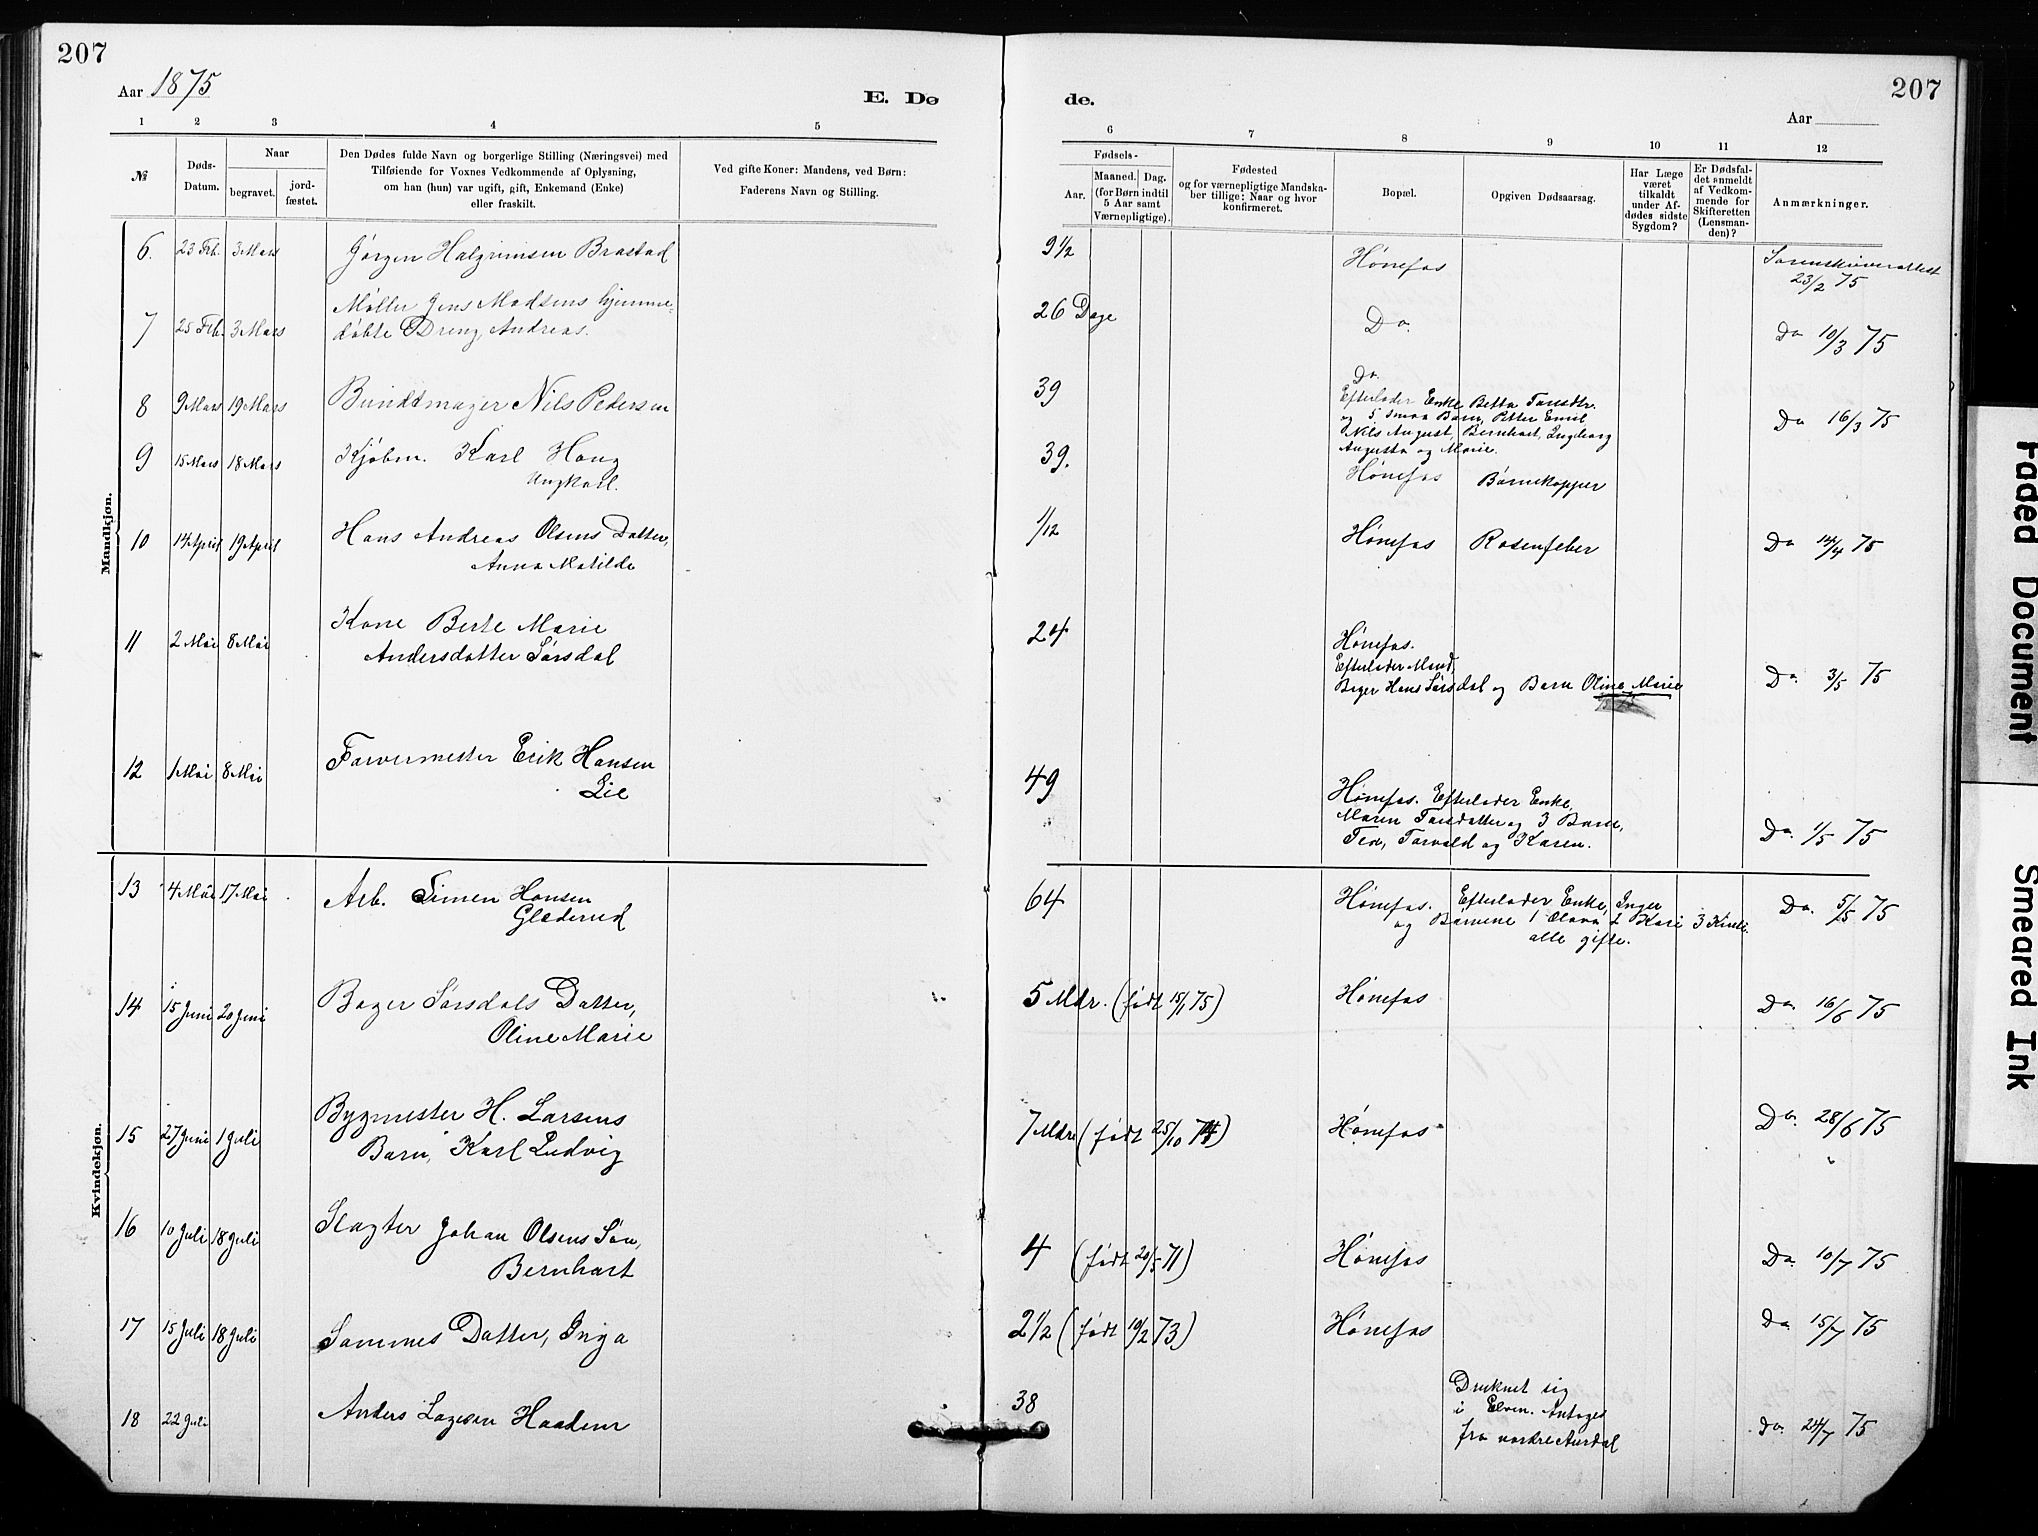 207
207
Aar 1875
E. Dø
de.
Aar
1 2 3 4 5
6 7 8 9 10 11 12
№
Døds-
Datum.
Naar
begravet.
jord-
fæstet.
Den Dødes fulde Navn og borgerlige Stilling (Næringsvei) med
Tilføiende for Voxnes Vedkommende af Oplysning,
om han (hun) var ugift, gift, Enkemand (Enke)
eller fraskilt.
Ved gifte Koner: Mandens, ved Børn:
Faderens Navn og Stilling.
Fødsels-
Aar.
Maaned. Dag.
(for Børn indtil
5 Aar samt
Værnepligtige).
Fødested
og for værnepligtige Mandska-
ber tillige: Naar og hvor
konfirmeret.
Bopæl.
Opgiven Dødsaarsag.
Har Læge
været
tilkaldt
under Af-
dødes sidste
Sygdom?
Er Dødsfal-
det anmeldt
af Vedkom-
mende for
Skifteretten
(Lensman-
den)?
Anmærkninger.
Mandkjøn.
Kvindekjøn.
6. 23 Feb. 3 Mars Jørgen Halgrimsen Brastad 9 1/2 Hønefos Sorenskriverattest
23/2 75
7 25 Feb. 3 Mars Møller Jens Madsens hjemme-
døbte Dreng, Andreas. 26 Dage Do. Do 10/3 75
8 9 Mars 19 Mars Bundtmager Nils Pedersen 39 Do.
Efterlader Enke Betta
og 5 smaa Børn, Petter Emil
Nils August, Bernhart, Ingeborg
Augusta og Marie. Do 16/3 75
9 15 Mars 18 Mars Kjøbm. Karl Haug
Ungkarl. 39. Hønefos Børnekopper
10 14 April 19 April Hans Andreas Olsens Datter,
Anna Matilde 1/12 Hønefos Rosenfeber Do 14/4 75
11 2 Mai 8 Mai Kone Berte Marie
Andersdatter Sørsdal 24 Hønefos.
Efterlader Mand,
Bager Hans Sørsdal og Barn Oline Marie Do. 3/5 75
12 1 Mai 8 Mai Farvermester Erik Hansen
Lie 49 Hønefos. Efterlader Enke,
Maren og 3 Børn,
Torvald og Karen. Do. 1/5 75
13 4 Mai 17 Mai Arb. Simen Hansen
Gladerud 64 Hønefos. Efterlader Enke, Inger
og Børnene 1 Olava 2 Kari 3
alle gifte. Do. 5/5 75
14 15 Juni 20 Juni Bager Sørsdals Datter,
Oline Marie 5 Mdr. (født 15/1 75) Hønefos Do. 16/6 75
15 27 Juni 1 Juli Bygmester H. Larsens
Barn, Karl Ludvig 7 Mdr (født 25/10 74) Hønefos Do. 28/6 75
16 10 Juli 18 Juli Slagter Johan Olsens Søn,
Bernhart 4 (født 20/5 71) Hønefos Do. 10/7 75
17 15 Juli 18 Juli Sammes Datter, Inga 2 1/2 (født 19/2 73) Hønefos Do. 15/7 75
18 22 Juli Anders Haadem 38 Druknet sig
i Elven. Antages
fra nordre Aurdal Do. 24/7 75
Faded Document
Smeared Ink